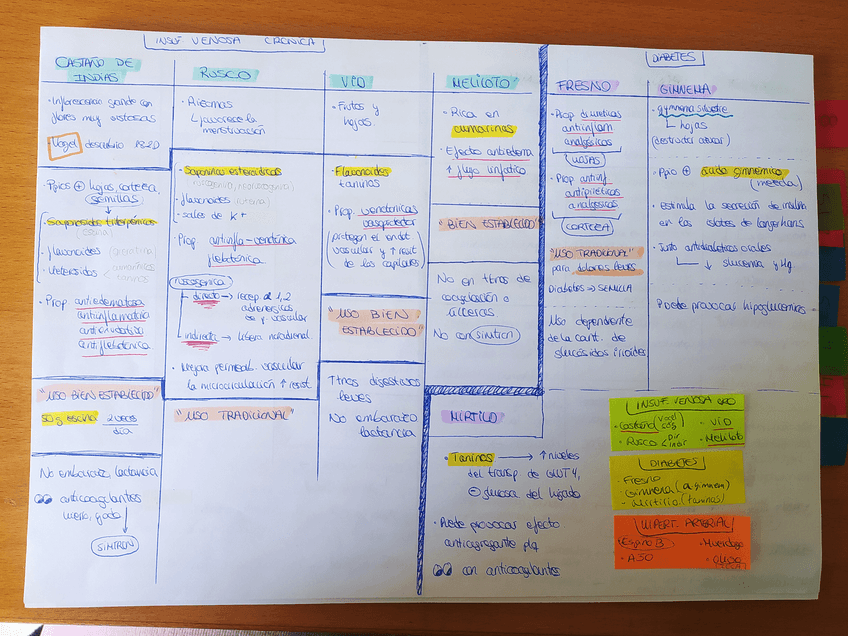 INSUF. VENOSA CRÓNICA
CASTAÑO DE
INDIAS
· Inflorescencia grande con
flores muy vistosas
Vogel descubrió
· Ppios ⊕ hojas, corteza,
semillas
- Saponósidos triterpénicos
- flavonoides
- Heterósidos cumarínicos
taninos
· Prop antiedematosa
antiinflamatoria
antiexudativa
antiflebotónica
"USO BIEN ESTABLECIDO"
50 g escina 2 veces
día
No embarazo, lactancia
anticoagulantes
SINTROM
RUSCO
· Rizomas
↳ favorece la
menstruación
· Saponinas esteroídicas
· flavonoides
· sales de K+
· Prop antinfla - venotónica
flebotónica
ruscogenina
directo → recep α 1,2
adrenérgicos
de p. vascular
indirecto → libera noradrenal.
· Mejora permeab. vascular
la microcirculación ↑ resist.
"USO TRADICIONAL"
VID
· Frutos y
hojas.
· Flavonoides
taninos
· Prop venotónicas
vasoprotector
(protegen el endot
vascular y ↑ resist
de los capilares)
"USO BIEN
ESTABLECIDO"
Ttnos digestivos
leves
No embarazo
lactancia
MELILOTO
· Rica en
cumarinas
· Efecto antiedema
↑ flujo linfático
"BIEN ESTABLECIDO"
No en ttnos de
coagulación o
úlceras
No con sintrom
MIRTILO
· Taninos → ↑ niveles
del transp de GLUT4,
⊖ glucosa del hígado
· Puede provocar efecto
antiagregante plq
con anticoagulantes
DIABETES
FRESNO
· Prop diuréticas
antiinflam
analgésicas
HOJAS
· Prop antinf
antipiréticas
analgésicas
CORTEZA
"USO TRADICIONAL"
para dolores leves
Diabetes → SEMILLA
Uso dependiente
de la cant. de
glucósidos iridoides
GIMNEMA
· gymnema silvestre
↳ hojas
(destructor azúcar)
· Ppio ⊕ ácido gimnémico
(mezcla)
· Estimula la secreción de insulina
en los islotes de Langerhans
· Junto antidiabéticos orales
↳ ↓ glucemia y Hg
· Puede provocar hipoglucemias
INSUF. VENOSA
· Castaño
· Rusco
· VID
· Meliloto
DIABETES
- Fresno
- Gimnema (ac gimnem)
- Mirtilo (taninos)
HIPERT. ARTERIAL
· Espino B
· AJO
· Muérdago
· Olivo